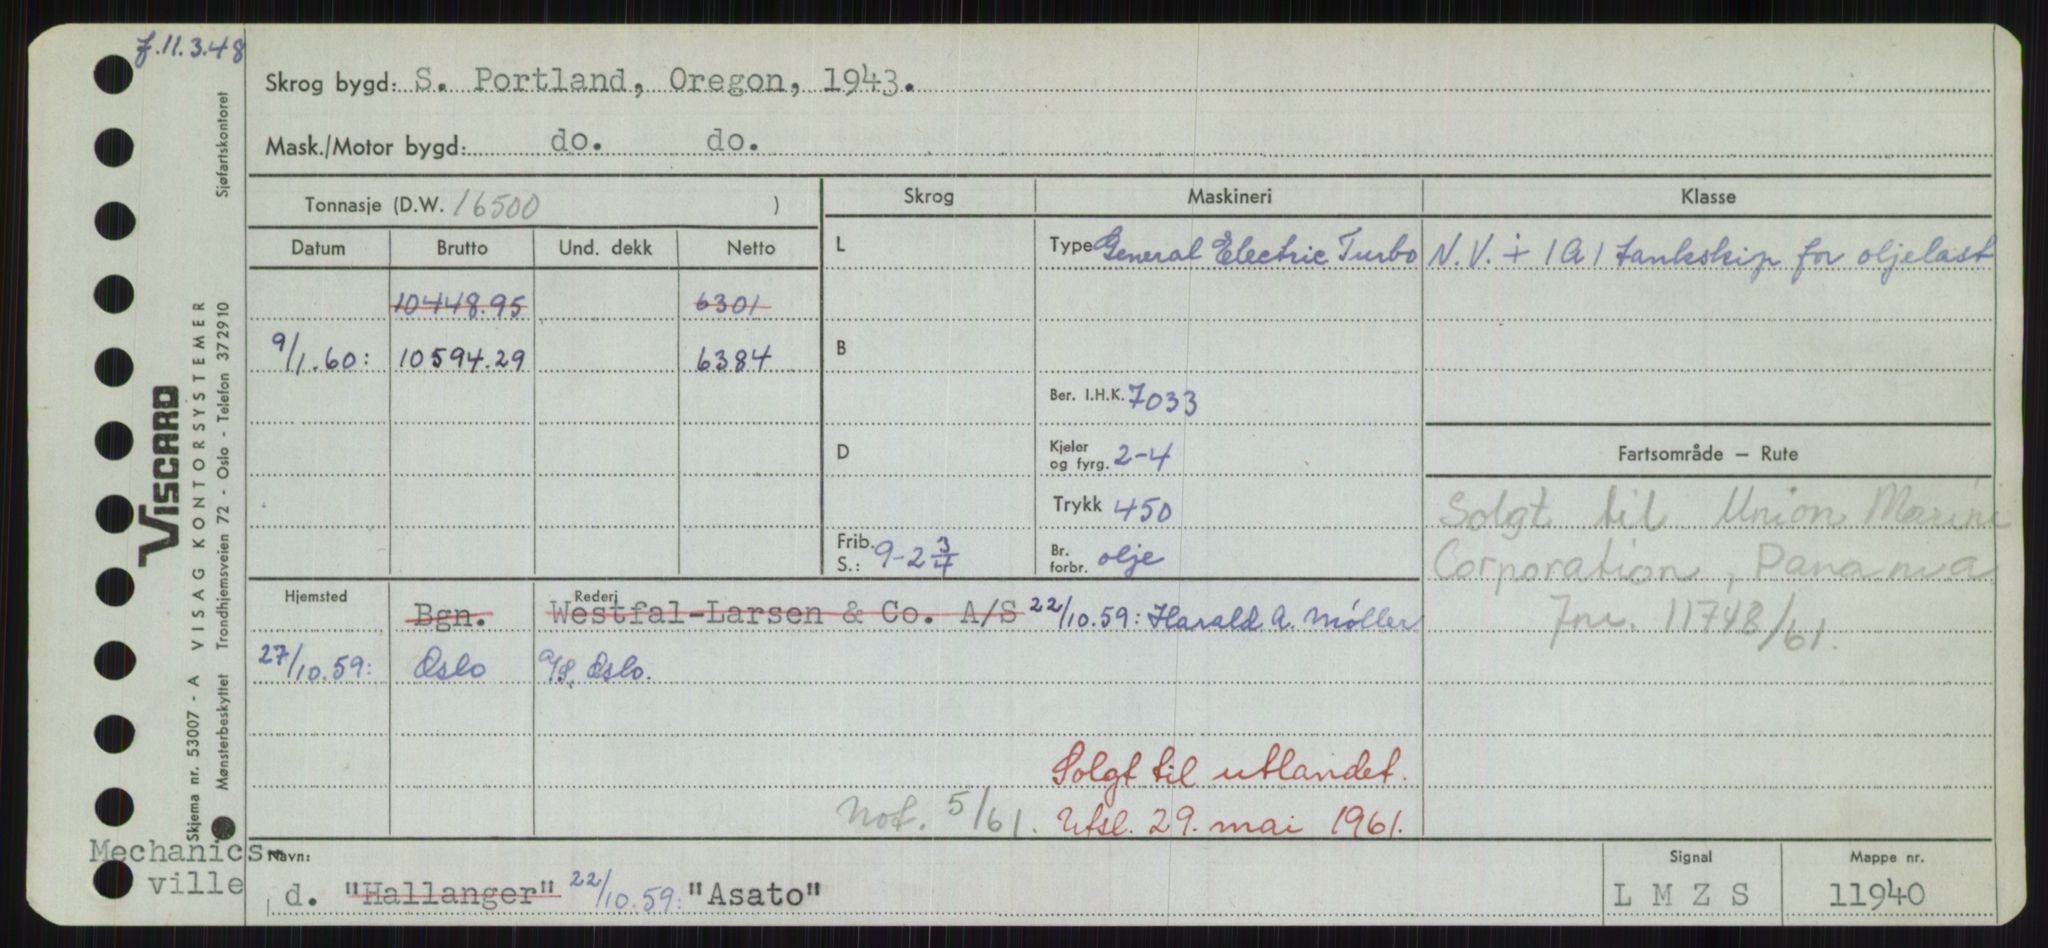 f.11.3.48
Skrog bygd: S. Portland, Oregon, 1943.
Mask./Motor bygd: do. do.
Tonnasje (D.W. 16500 )
Skrog
Maskineri
Klasse
Datum Brutto Und. dekk Netto
L
Type General Electric Turbo
N.V. + 1A1 tankskip for oljelast
10448.95 6301
9/1.60: 10594.29 6384
B
Ber. I.H.K. 7033
D
Kjeler og fyrg. 2-4
Fartsområde — Rute
Trykk 450
Solgt til Union Marine
Frib. S.: 9-2 3/4
Br. forbr. olje
Corporation, Panama
Jnr. 11748/61.
Hjemsted
Rederi
Bgn. Westfal-Larsen & Co. A/S 22/10.59: Harald A. Møller
27/10.59: Oslo A/S, Oslo.
Solgt til utlandet.
Not. 5/61. Utsl. 29. mai 1961.
Mechanics-
ville
Navn:
d. "Hallanger" 22/10.59: "Asato"
Signal
L M Z S
Mappe nr.
11940
VISCARD
Skjema nr. 53007 - A VISAG KONTORSYSTEMER
Mønsterbeskyttet Trondhjemsveien 72 - Oslo - Telefon 372910
Sjøfartskontoret